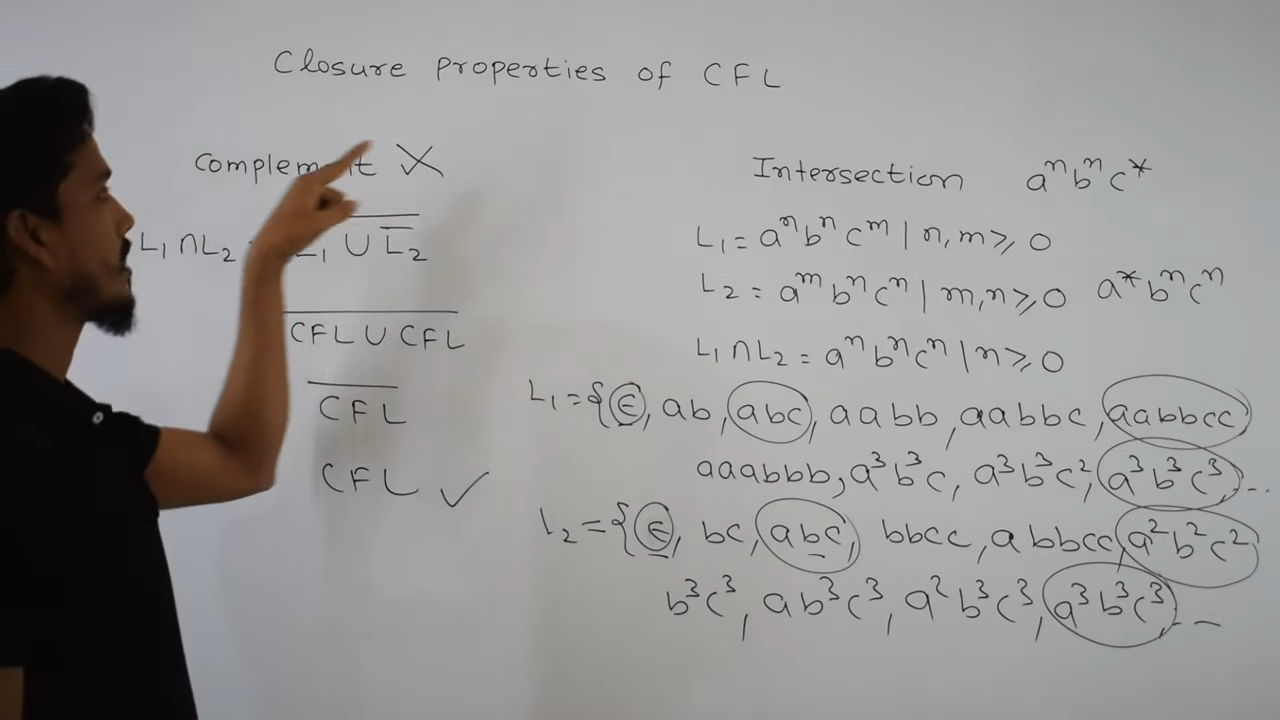 Closure properties of CFL
Complement X
L₁∩L₂ = L̅₁ ∪ L̅₂
CFL ∪ CFL
CFL
CFL ✓
Intersection aⁿbⁿc*
L₁ = aⁿbⁿcᵐ | n,m ≥ 0
L₂ = aᵐbⁿcⁿ | m,n ≥ 0 a*bⁿcⁿ
L₁∩L₂ = aⁿbⁿcⁿ | n ≥ 0
L₁ = {ε, ab, abc, aabb, aabbc, aabbcc
aaabbb, a³b³c, a³b³c², a³b³c³, ...
L₂ = {ε, bc, abc, bbcc, abbcc, a²b²c²
b³c³, ab³c³, a²b³c³, a³b³c³, ...